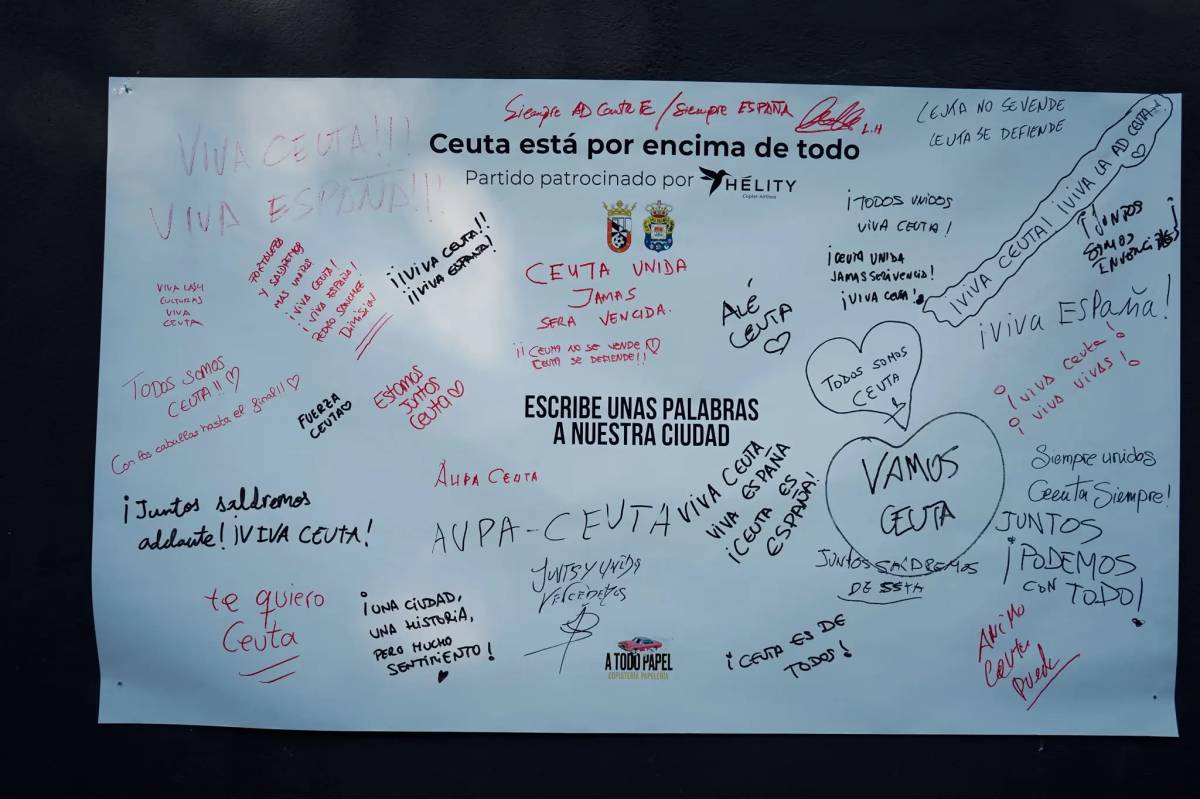 Siempre AD CEUTA FC / Siempre ESPAÑA
L.H
CEUTA NO SE VENDE
CEUTA SE DEFIENDE
VIVA CEUTA!!!
VIVA ESPAÑA!!!
Ceuta está por encima de todo
Partido patrocinado por HÉLITY
Copter Airlines
¡VIVA CEUTA! ¡VIVA LA AD CEUTA!
¡TODOS UNIDOS
VIVA CEUTA!
¡JUNTOS
SOMOS
INVENCIBLES!
FORTALEZA
Y SALDREMOS
MAS UNIDOS
¡VIVA CEUTA!
¡VIVA ESPAÑA!
PEDRO SANCHEZ
DIMISION
¡¡¡VIVA CEUTA!!!
¡¡¡VIVA ESPAÑA!
CEUTA UNIDA
JAMAS
SERA VENCIDA.
¡¡CEUTA NO SE VENDE
CEUTA SE DEFIENDE!!
¡CEUTA UNIDA
JAMAS SERÁ VENCIDA!
¡VIVA CEUTA!
VIVA LAS 4
CULTURAS
VIVA
CEUTA
ALÉ
CEUTA
¡VIVA ESPAÑA!
¡VIVA CEUTA!
VIVA VIVAS!
TODOS SOMOS
CEUTA!!
Con los caballas hasta el final!!
FUERZA
CEUTA
ESTAMOS
JUNTOS
CEUTA
TODOS SOMOS
CEUTA
ESCRIBE UNAS PALABRAS
A NUESTRA CIUDAD
VAMOS
CEUTA
Siempre unidos
Ceuta Siempre!
AUPA CEUTA
VIVA CEUTA
VIVA ESPAÑA
¡CEUTA ES
ESPAÑA!
¡Juntos saldremos
adelante! ¡VIVA CEUTA!
AUPA-CEUTA
JUNTOS
¡PODEMOS
CON TODO!
JUNTOS SALDREMOS
DE
te quiero
Ceuta
¡UNA CIUDAD,
UNA HISTORIA,
PERO MUCHO
SENTIMIENTO!
JUNTS Y UNIDS
VENCEREMOS
A TODO PAPEL
COPISTERÍA PAPELERÍA
¡CEUTA ES DE
TODOS!
ANIMO
CEUTA
PUEDE